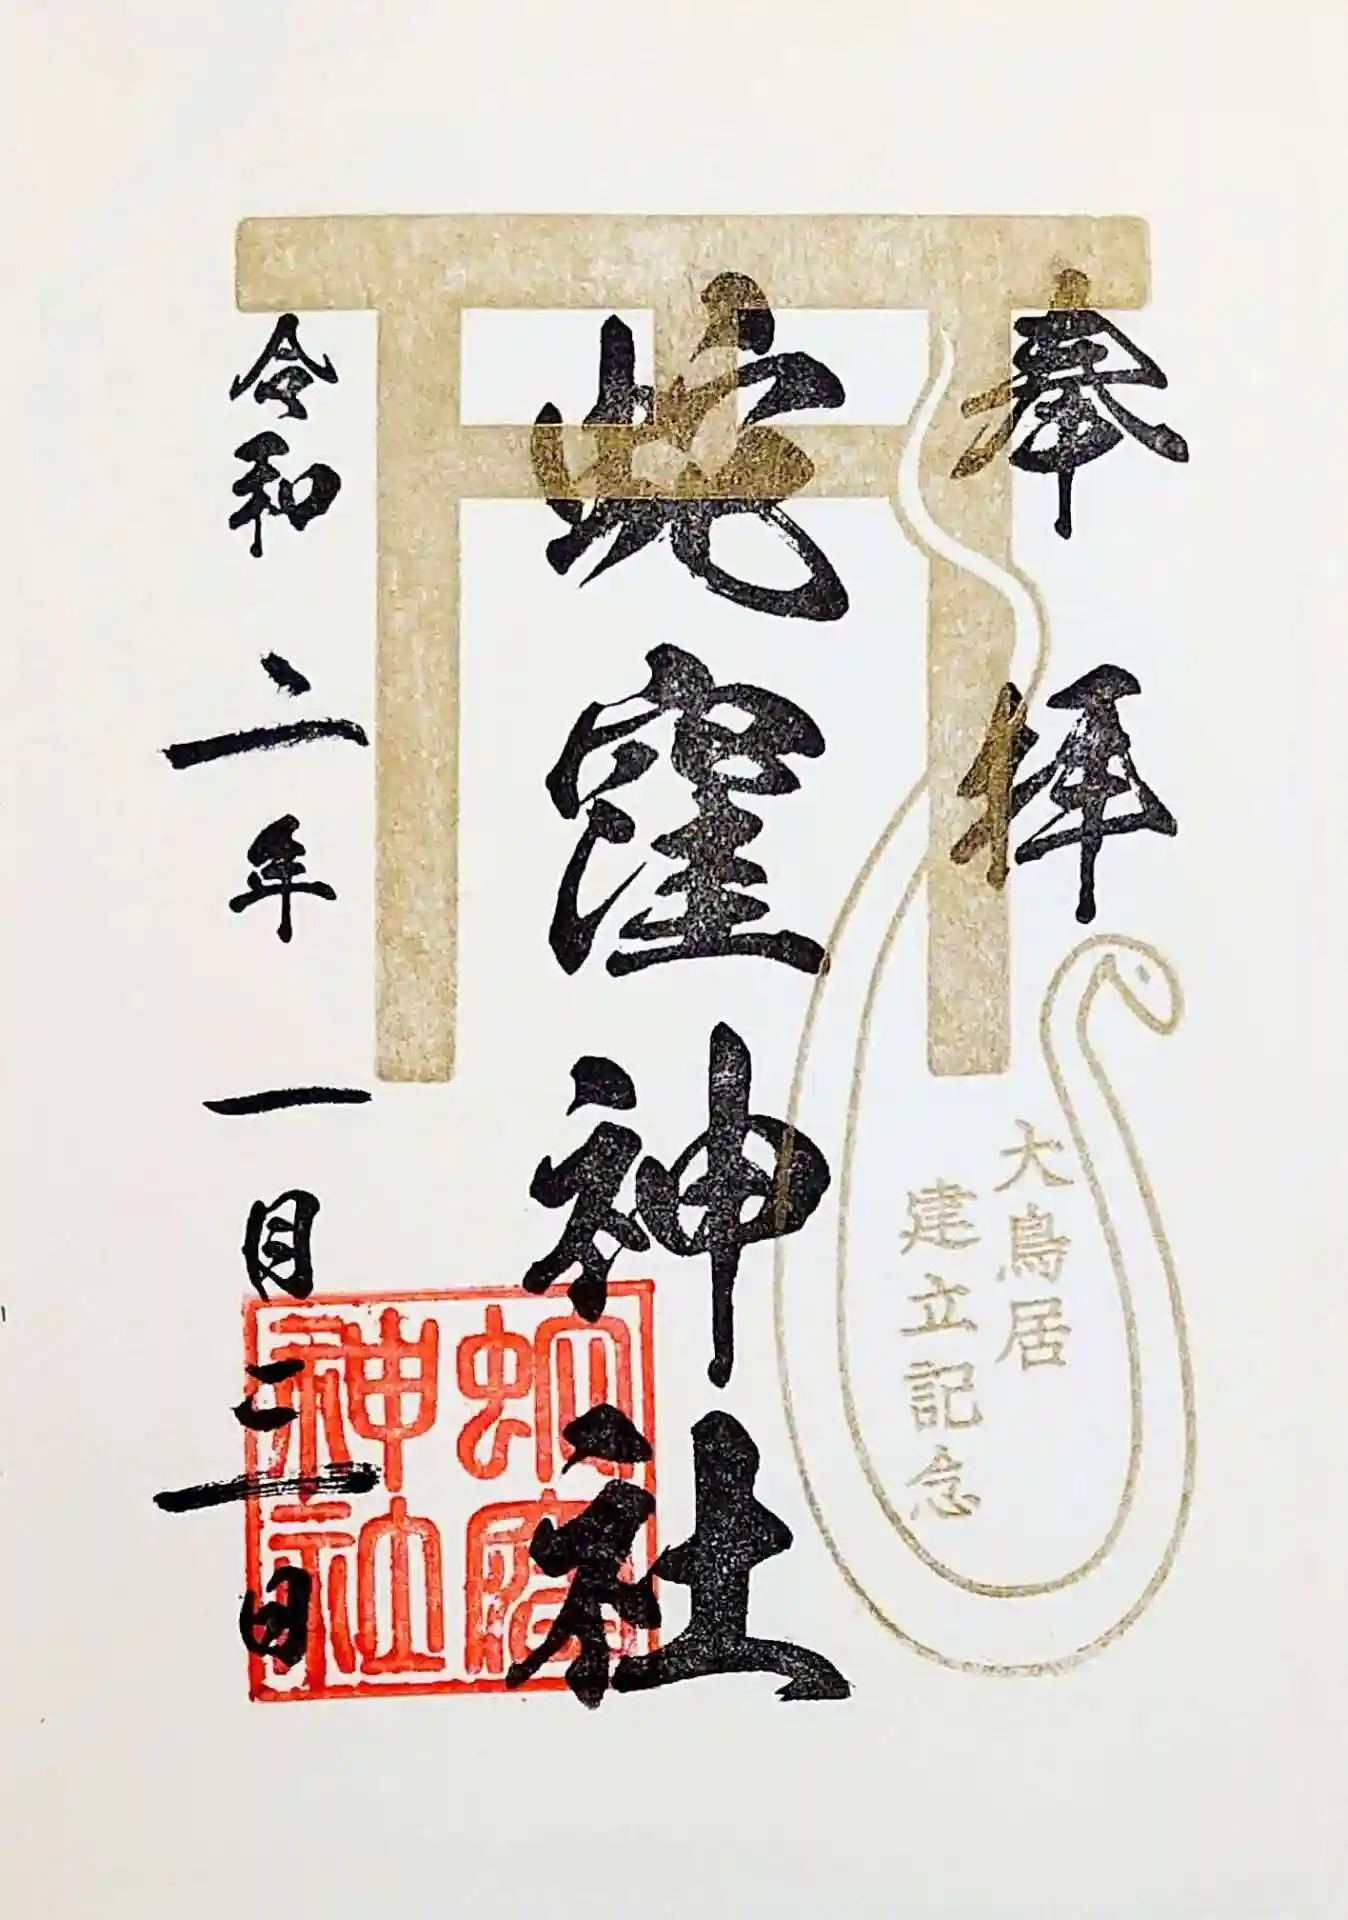 奉拝
大鳥居
建立記念
蛇窪神社
蛇窪
神社
令和二年一月三日